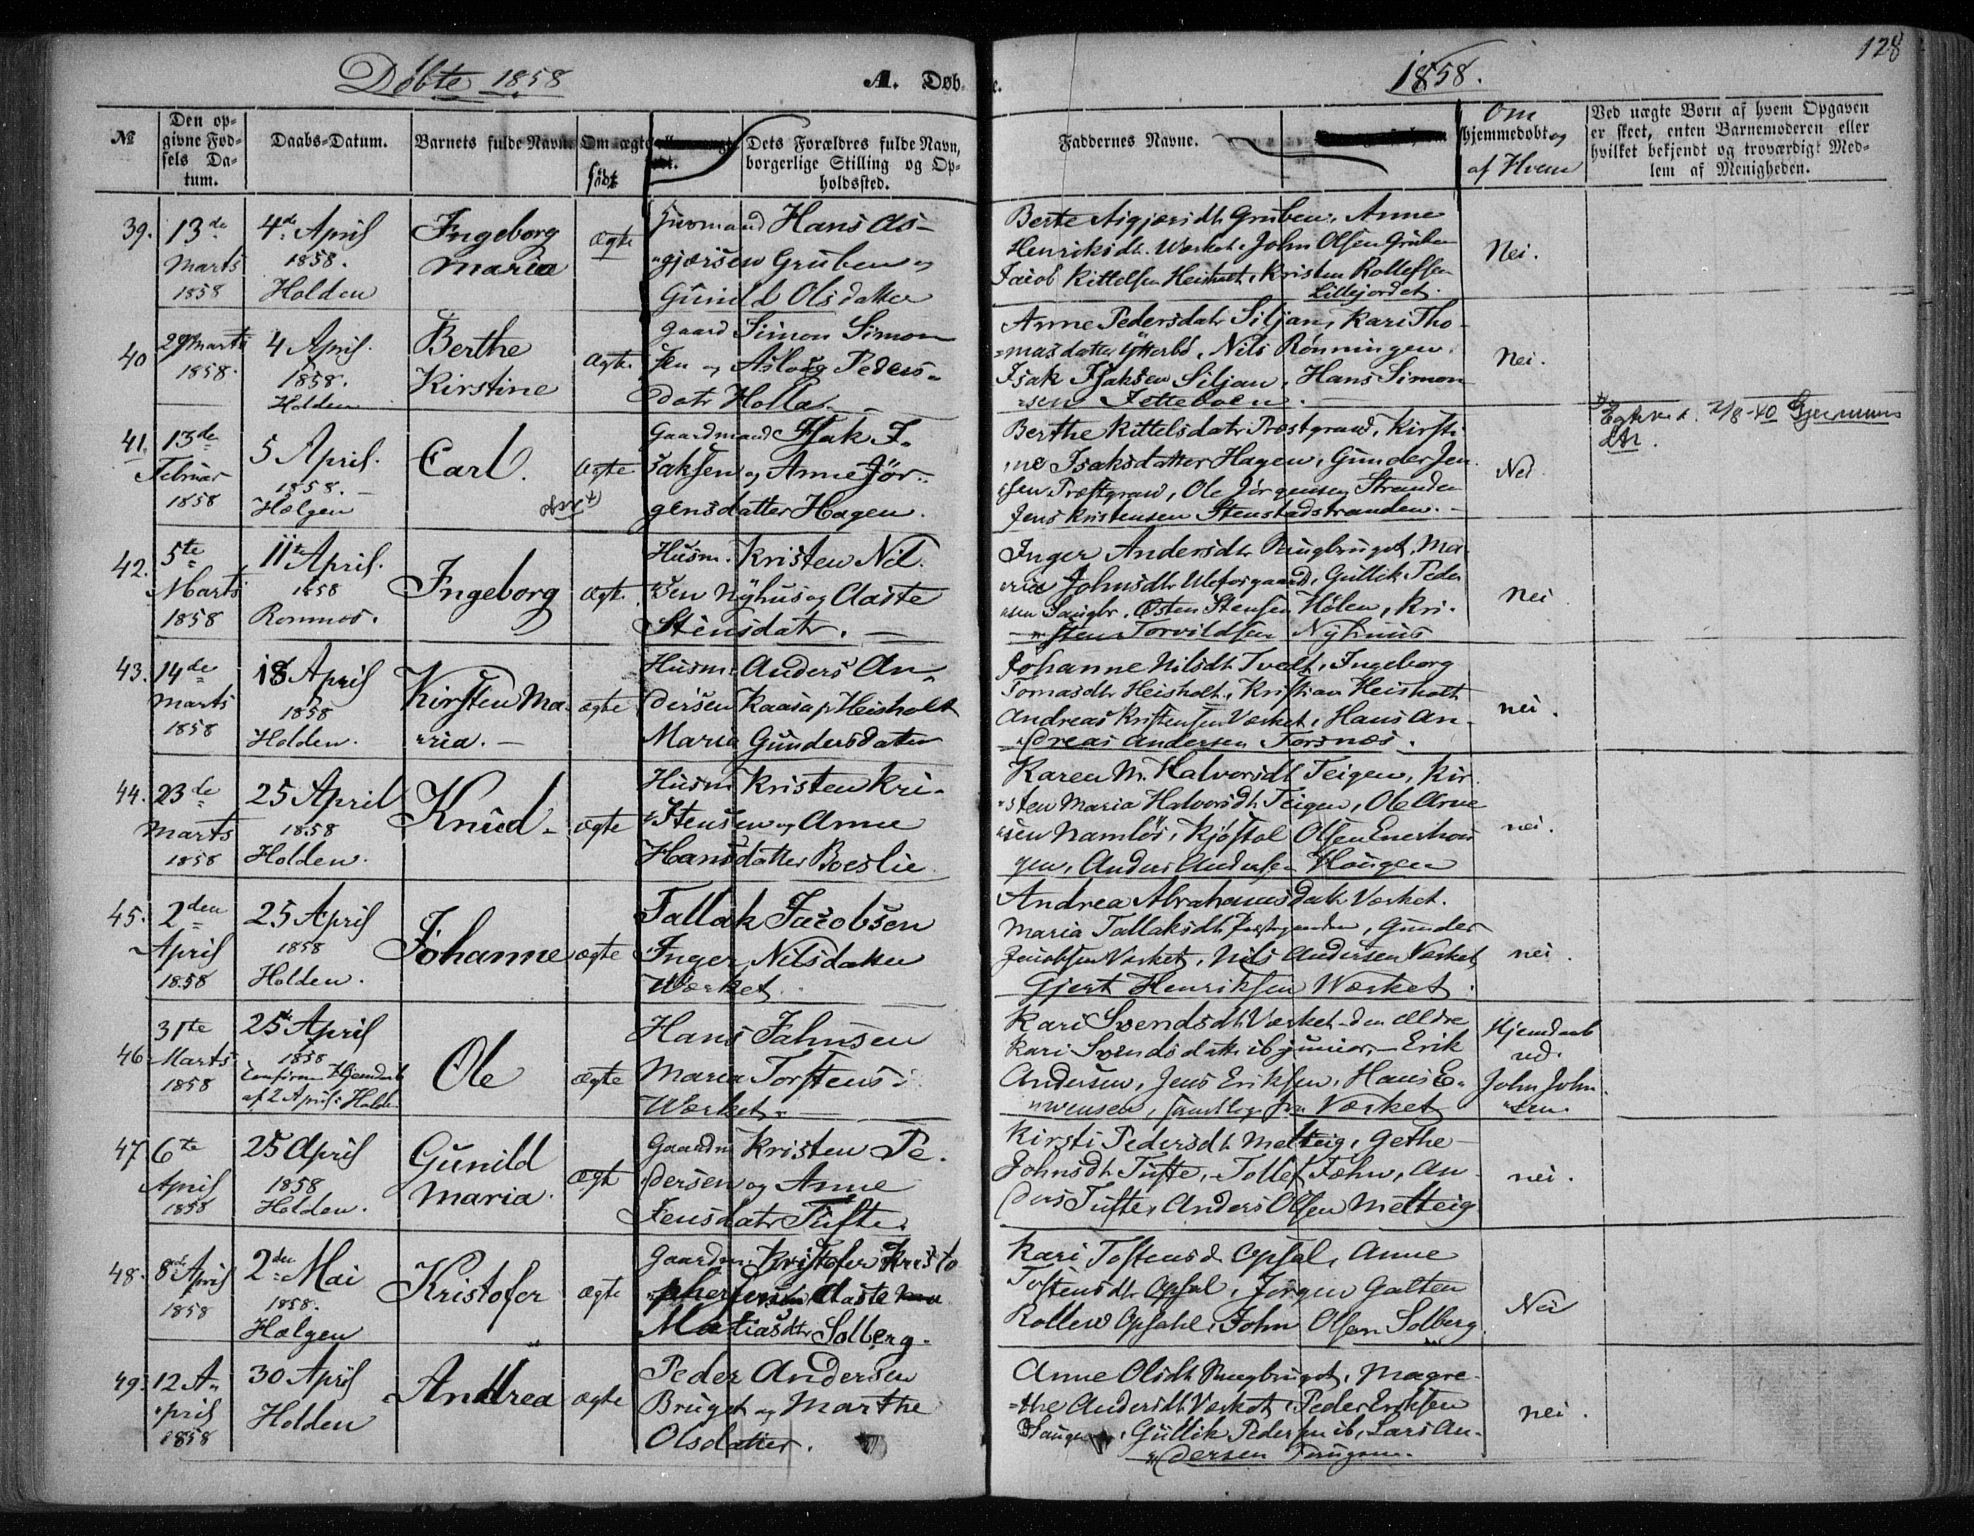 Døbte 1858
A. Døb-
e.
1858.
128
№
Den op-
givne Fød-
sels Da-
tum.
Daabs-Datum.
Barnets fulde Navn.
Om ægte
født
Dets Forældres fulde Navn,
borgerlige Stilling og Op-
holdssted.
Faddernes Navne.
Om
hjemmedøbt og
af Hvem
Ved uægte Børn af hvem Opgaven
er skeet, enten Barnemoderen eller
hvilket bekjendt og troværdigt Med-
lem af Menigheden.
39.
13de
Marts
1858
4de April
1858.
Holden
Ingeborg
Maria
ægte
Huusmand Hans As-
gjærsen Gruben og
Gunild Olsdatter
Berte Asgjærsdtr Gruben, Anne
Henriksdtr. Værket, John Olsen Gruben
Jacob Kittelsen Heisholt, Kristen Rollefsen
Lillejordet.
Nei.
40
29 Marts
1858.
4 April.
1858.
Holden
Berthe
Kirstine
ægte
Gaard Simon Simon
sen og Aslaug Peders-
datr Holla.
Anne Pedersdatr Siljan, Kari Tho-
masdatter Ytterbø, Nils Rønningen,
Isak Isaksen Siljan, Hans Simon
sen Jotteboen.
Nei.
41.
13de
Februar
1858
5 April.
1858.
Hælgen
Carl.
ægte
Gaardmand Isak I-
saksen og Anne Jør-
gensdatter Hagen.
Berthe Kittelsdatr Præstgrav, Kirsti-
ne Isaksdatter Hagen, Gunder Jen
sen Præstgrav, Ole Jørgensen Stranden
Jens Kristensen Stenstadstranden.
Nei
2/8-40
42.
5te
Marts
1858
11te April.
1858
Romnes.
Ingeborg
ægte
Husm. Kristen Nil
sen Nyhus og Aaste
Stensdatr.
Inger Andersdtr Saugbruget, Ma-
ria Johnsdtr Ulefosgaard, Gullik Peder
sen Saugbr. Østen Stensen Holen, Kri-
sten Torvildsen Nyhuus
Nei
43.
14de
Marts
1858
18 April
1858
Holden.
Kirsten Ma-
ria.
ægte
Husm. Anders An-
dersen Kaasa p Heisholt
Maria Gundersdatter
Johanne Nilsdtr Tvedt, Ingeborg
Tomasdtr Heisholt, Kristian Heisholt
Andreas Kristensen Værket, Hans An-
dreas Andersen Torsnæs.
nei.
44.
23de
Marts
1858
25 April
1858
Holden.
Knud
ægte
Husm Kristen Kri-
stensen og Anne
Hansdatter Boeslie
Karen M. Halvorsdtr Teigen, Kir-
sten Maria Halvorsdtr Teigen, Ole Arne
sen Namløs, Kjøstol Olsen Enerhou
gen, Anders Andersen Hougen
nei.
45.
2den
April
1858
25 April
1858
Holden.
Johanne
ægte
Tallak Jacobsen
Inger Nilsdatter
Værket
Andrea Abrahamsdatr Værket.
Maria Tallaksdtr, Gunder
Jacobsen Værket, Nils Andersen Værket,
Gjert Henriksen Værket.
nei.
46
31te
Marts
1858
25de April
1858
Confirm Hjemdaab
af 2 April i Holden
Ole
ægte
Hans Jahnsen
Maria Torstens
Værket
Kari Svendsdtr Værket den Ældre
Kari Svendsdatr ib junior, Erik
Andersen, Jens Eriksen, Hans E-
vensen, samtlige fra Værket
Hjemdaab
ved.
John John
sen.
47
6te
April
1858
25 April
1858
Holden.
Gunild
Maria.
ægte
Gaardm Kristen Pe-
dersen og Anne
Jensdatr Tufte.
Kirsti Pedersdtr Melteig, Gethe
Johnsdtr Tufte, Tollef Fæhn, An-
ders Tufte, Anders Olsen Melteig
nei.
48.
8de April
1858
2den Mai
1858.
Hælgen
Kristofer
ægte
Gaardm Kristofer Kristo
phersen Aaste
Matiasdtr Solberg.
Kari Tostensd Opsal, Anne
Tostensdtr Opsal, Jørgen Galten
Rollew Opsahl, John Olsen Solberg.
Nei
49.
12 A-
pril
1858
30 April
Holden
Andrea
ægte
Peder Andersen
Bruget og Marthe
Olsdatter.
Anne Olsdtr Saugbruget, Magre-
the Andersdtr Værket, Peder Eriksen
Gullik Pedersen ib, Lars An-
dersen Saugen.
nei.